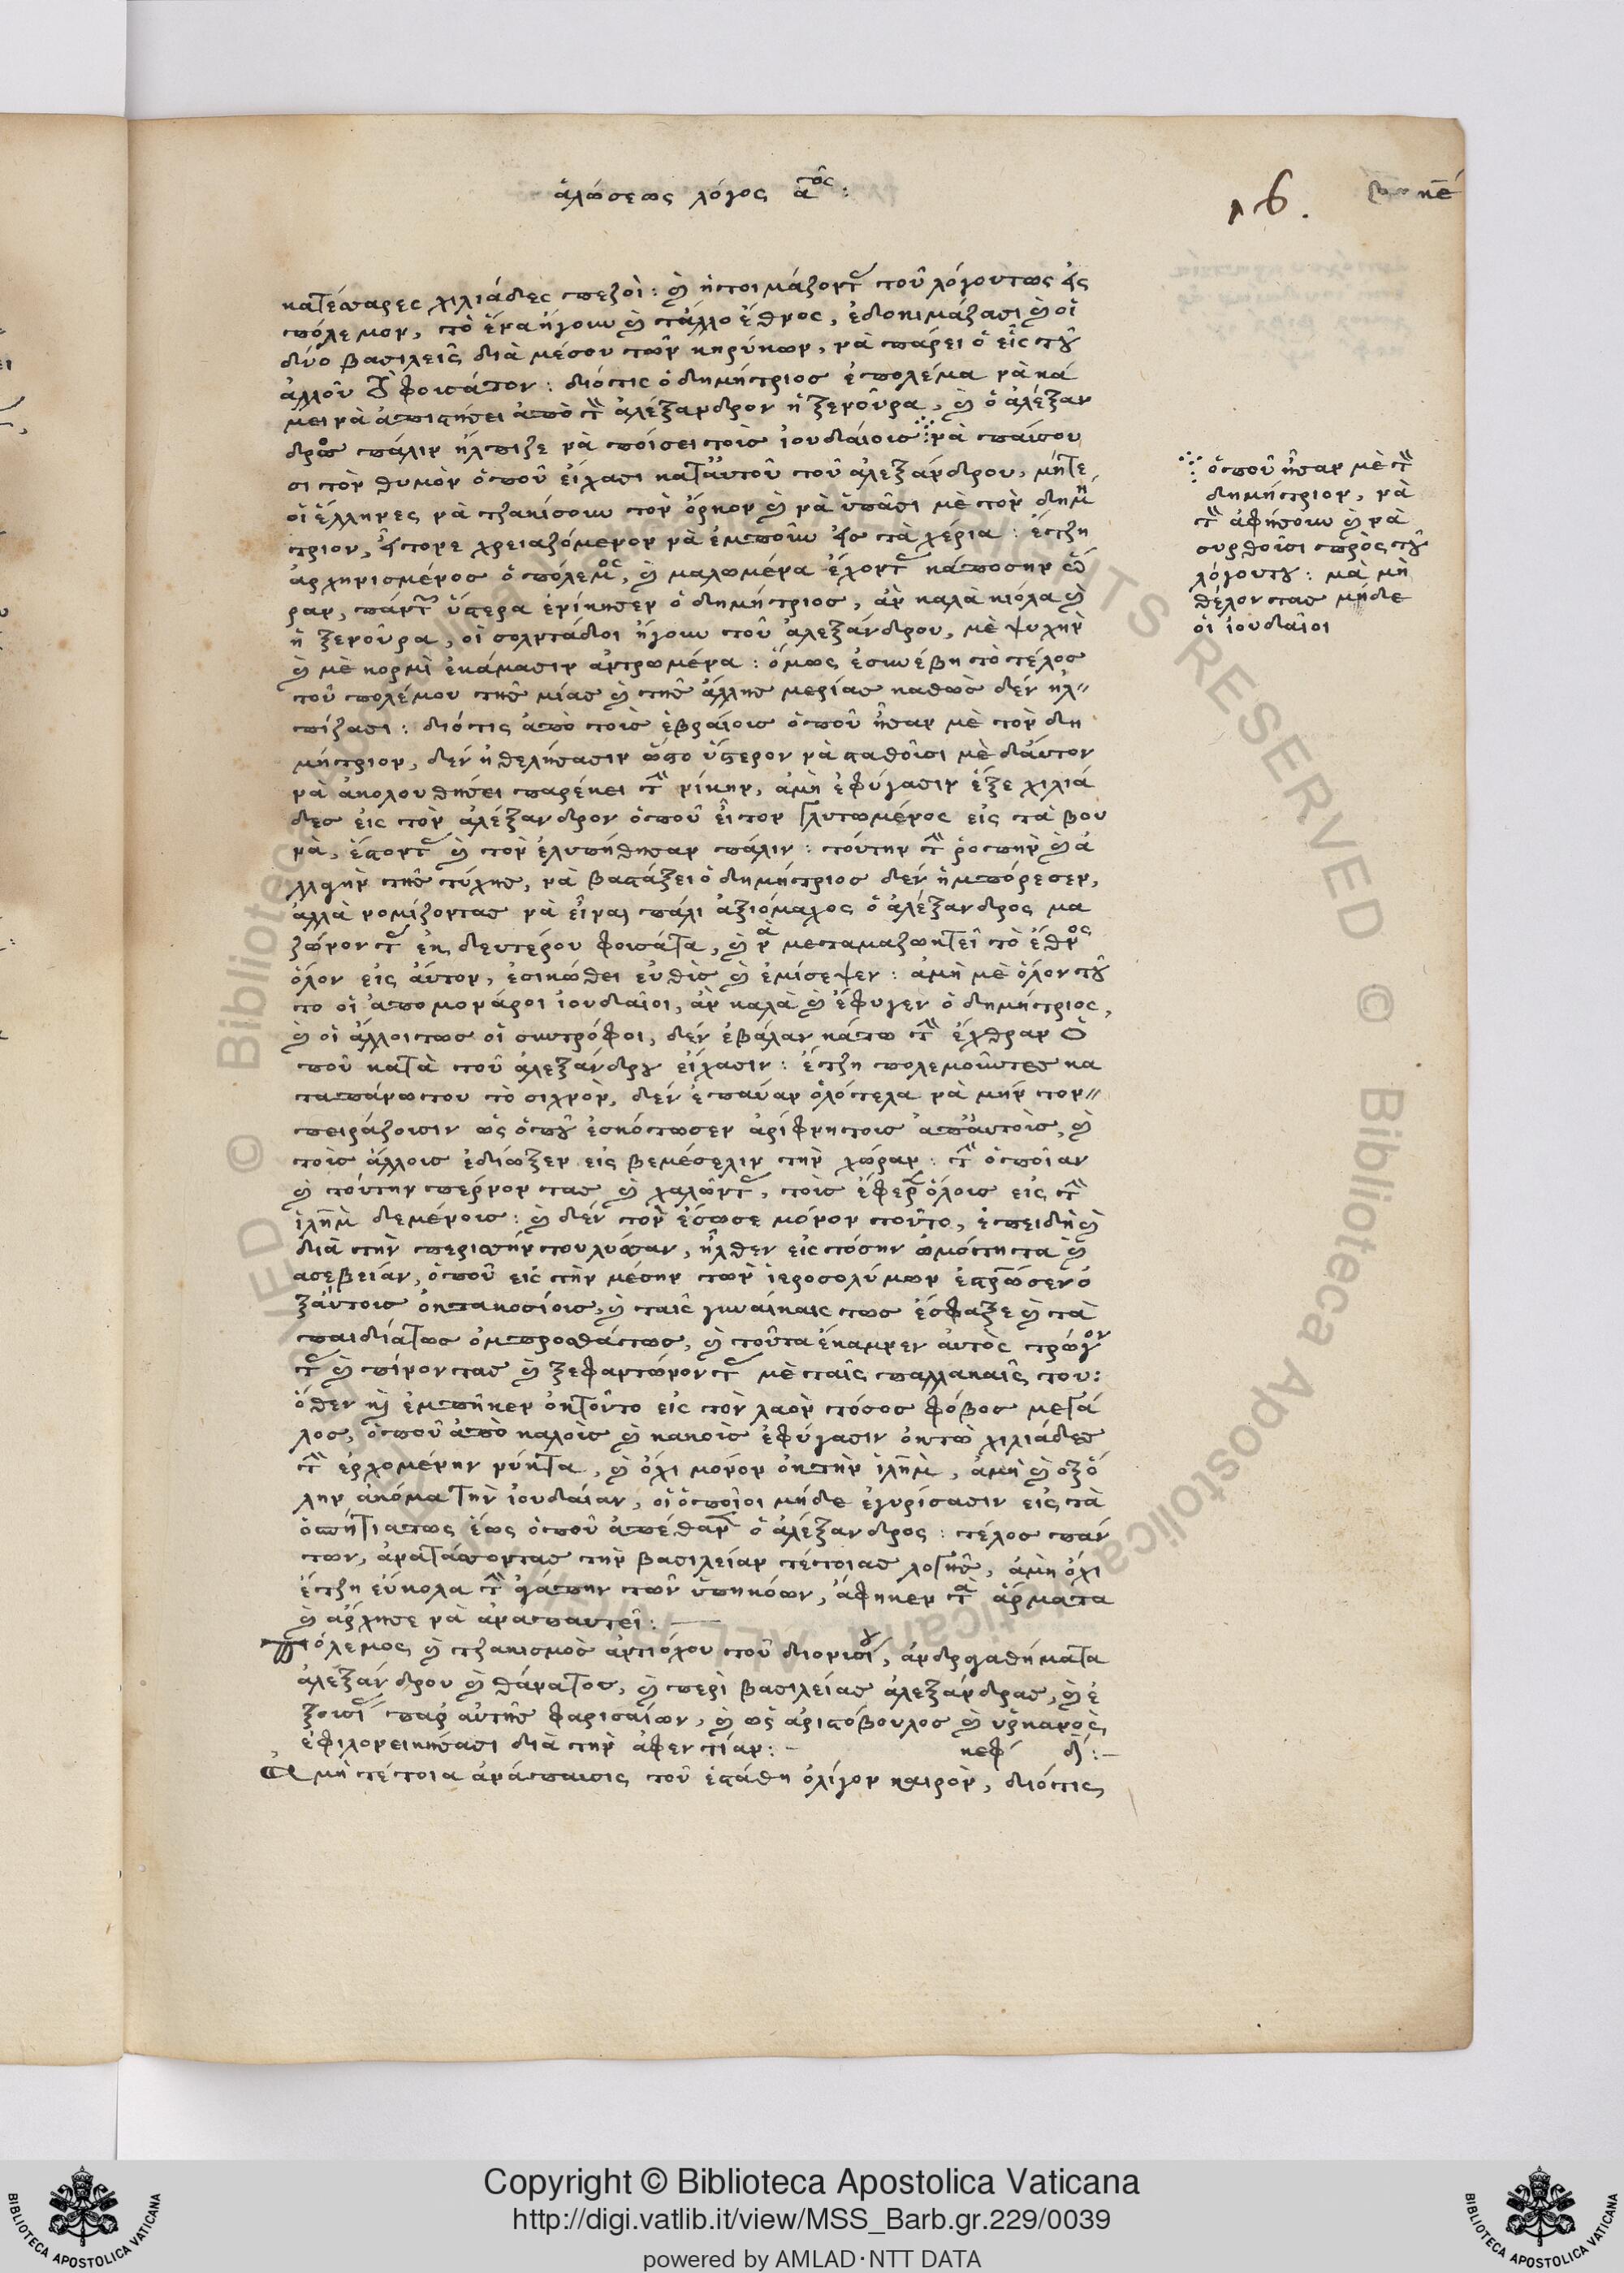 ἁλώσεως λόγος α^τος:
16.
κατέσσαρες χιλιάδες πεζοί: καὶ ἡτοιμάζοντας τοῦ λόγουτως εἰς
πόλεμον, τὸ ἕνα ἤγουν καὶ τἄλλο ἔθνος, ἐδοκιμάζασι καὶ οἱ
δύο βασιλεῖς διὰ μέσου τῶν κηρύκων, νὰ πάρει ὁ εἷς τοῦ
ἀλλοῦ τὸ φουσάτον: διότις ὁ δημήτριος ἐπολέμα νὰ κά
μει νὰ ἀπιστήσει ἀπὸ τὸν ἀλέξανδρον ἡ ξενοῦρα, καὶ ὁ ἀλέξαν
δρος πάλιν ἤλπιζε νὰ ποίσει τοὶς ἰουδαίοις νὰ παύσου
σι τὸν θυμὸν ὁποῦ εἴχασι κατ' αὐτοῦ τοῦ ἀλεξάνδρου, μήτε
οἱ ἕλληνες νὰ τζακίσουν τὸν ὅρκον καὶ νὰ ὑπᾶσι μὲ τὸν δημή
τριον, ἦτονε χρειαζόμενον νὰ ἐμποῦν εἰς τὰ χέρια: ἔτζη
ἀρχηνισμένος ὁ πόλεμος, καὶ μαλωμένα ἔχοντας κάποσην ὥ
ραν, πάντας ὕστερα ἐνίκησεν ὁ δημήτριος, ἂν καλὰ κιόλα καὶ
ἡ ξενοῦρα, οἱ σολντάδοι ἤγουν τοῦ ἀλεξάνδρου, μὲ ψυχὴν
καὶ μὲ κορμὶ ἐκάμασιν ἀντρωμένα: ὅμως ἐσυνέβη τὸ τέλος
τοῦ πολέμου τῆς μίας καὶ τῆς ἄλλης μερίας καθὼς δέν ἠλ
πίζασι: διότις ἀπὸ τοὶς ἑβραίοις ὁποῦ ἦσαν μὲ τὸν δη
μήτριον, δέν ἠθελήσασιν ὕστερον νὰ σταθοῦσι μὲ δαῦτον
νὰ ἀκολουθήσει παρέκει τὴν νίκην, ἀμὴ ἐφύγασιν ἕξε χιλιά
δες εἰς τὸν ἀλέξανδρον ὁποῦ εἶτον γλυτωμένος εἰς τὰ βου
νὰ, ἔστοντας καὶ τὸν ἐλυπήθησαν πάλιν: τούτην τὴν ῥοπὴν καὶ ἀ
λλαγὴν τῆς τύχης, νὰ βαστάξει ὁ δημήτριος δέν ἠμπόρεσεν,
ἀλλὰ νομίζοντας νὰ εἶναι πάλι ἀξιόμαχος ὁ ἀλέξανδρος μα
ζώνοντας ἐκ δευτέρου φουσάτα, καὶ νὰ μεταμαζωκτεῖ τὸ ἔθνος
ὅλον εἰς αὐτον, ἐσικώθει εὐθὶς καὶ ἐμίσεψεν: ἀμὴ μὲ ὅλον τοῦ
το οἱ ἀπομονάροι ἰουδαῖοι, ἂν καλὰ καὶ ἔφυγεν ὁ δημήτριος,
καὶ οἱ ἄλλοιτως οἱ συντρόφοι, δέν ἐβάλαν κάτω τὴν ἔχθραν ὁ
ποῦ κατὰ τοῦ ἀλεξάνδρου εἴχασιν: ἔτζη πολεμοῦντες κα
ταπάνωτου τὸ συχνὸν, δέν ἐπαύαν ὁλότελα νὰ μήν τον
πειράζουσιν ὡς ὁποῦ ἐσκότωσεν ἀρίφνητοις ἀπ' αὐτοὶς, καὶ
τοὶς ἄλλοις ἐδίωξεν εἰς βεμέσελιν τὴν χώραν: τὴν ὁποῖαν
καὶ τούτην πέρνοντας καὶ χαλῶντας, τοὶς ἔφερεν ὅλοις εἰς τὴν
ἱλημ δεμένοις: καὶ δέν τὸν ἔσωσε μόνον τοῦτο, ἐπειδὴ καὶ
διὰ τὴν περισσήν του λύσσαν, ἦλθεν εἰς τόσην ὠμότητα καὶ
ασεβείαν, ὁποῦ εἰς τὴν μέσην τῶν ἱεροσολύμων ἐσταύρωσεν ὀ
ξαύτοις ὀκτακοσίοις, καὶ ταῖς γυναίκαις τως ἔσφαξε καὶ τὰ
παιδιάτως ὀμπροσθάτως, καὶ τοῦτα ἔκαμνεν αὐτὸς τρώγον
τας καὶ πίνοντας καὶ ξεφαντώνοντας μὲ ταῖς παλλακαῖς του:
ὅθεν καὶ ἐμπῆκεν ὀκτοῦτο εἰς τὸν λαὸν τόσος φόβος μεγά
λος, ὁποῦ ἀπὸ καλοὶς καὶ κακοὶς ἐφύγασιν ὀκτὼ χιλιάδες
τὴν ἐρχομένην νύκτα, καὶ ὄχι μόνον ὀκ τὴν ἱλημ, ἀμὴ καὶ ὀξ ὅ
λην ἀκόμα τὴν ἰουδαίαν, οἱ ὁποῖοι μήδε ἐγυρίσασιν εἰς τὰ
ὁσπήτιατως ἕως ὁποῦ ἀπέθανεν ὁ ἀλέξανδρος: τέλος πάν
των, ἀνατάσσοντας τὴν βασιλείαν τέτοιας λογῆς, ἀμὴ ὄχι
ἔτζη εὔκολα τὴν ἀγάπην τῶν ὑπηκόων, ἄφηκεν τὰ ἅρματα
καὶ ἄρχησε νὰ ἀναπαυτεῖ:
Πόλεμος καὶ τζακισμὸς ἀντιόχου τοῦ διονυσίου, ἀνδραγαθήματα
ἀλεξάνδρου καὶ θάνατος, καὶ περὶ βασιλείας ἀλεξάνδρας, καὶ ἐ
ξουσίας παρ' αὐτῆς φαρισαίων, καὶ ὡς ἀριστόβουλος καὶ ὑρκανὸς,
ἐφιλονεικήσασι διὰ τὴν ἀφεντίαν: κεφ δ:
Ἀμὴ τέτοια ἀνάπαυσις τοῦ ἐστάθη ὀλίγον καιρὸν, διότις
ὁποῦ ἦσαν μὲ τὸν
δημήτριον, νὰ
τὸν ἀφήσουν καὶ νὰ
συρθοῦσι πρὸς τοῦ
λόγουτου: μὰ μὴ
θέλοντας μήδε
οἱ ἰουδαῖοι
Copyright © Biblioteca Apostolica Vaticana
http://digi.vatlib.it/view/MSS_Barb.gr.229/0039
powered by AMLAD·NTT DATA